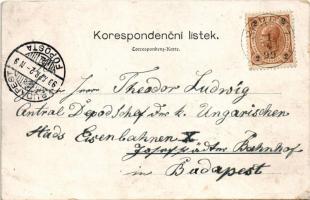 Korespondenční lístek.
Correspondenz-Karte.
Herr Theodor Ludwig
Central Depodschef der k. Ungarischen
Stads Eisenbahnen X
Josefstädter Bahnhof
in Budapest
BUDAPEST
FŐPOSTA